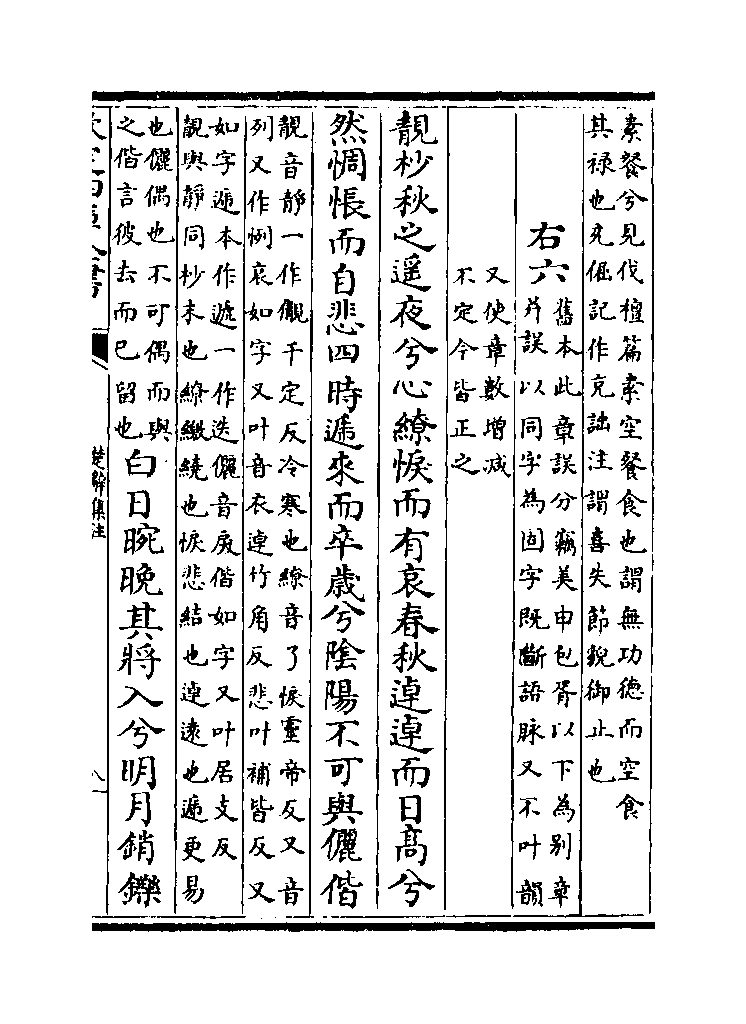 素餐兮見伐檀篇素空餐食也謂無功德而空食
其禄也充倔記作充詘注謂喜失節貌御止也
右六
舊本此章誤分竊美申包胥以下為别章
并誤以同字為固字既斷語脉又不叶韻
又使章數增減
不定今皆正之
靚杪秋之遥夜兮心繚悷而有哀春秋逴逴而日髙兮
然惆悵而自悲四時遞來而卒歳兮隂陽不可與儷偕
靚音靜一作覯千定反冷寒也繚音了悷靈帝反又音
列又作悷哀如字又叶音衣逴竹角反悲叶補皆反又
如字遞本作遰一作迭儷音戾偕如字又叶居支反
靚與靜同杪末也繚繳繞也悷悲結也逴逺也遞更易
也儷偶也不可偶而與
之偕言彼去而已留也
白日晼晚其將入兮明月銷鑠
楚辭集注